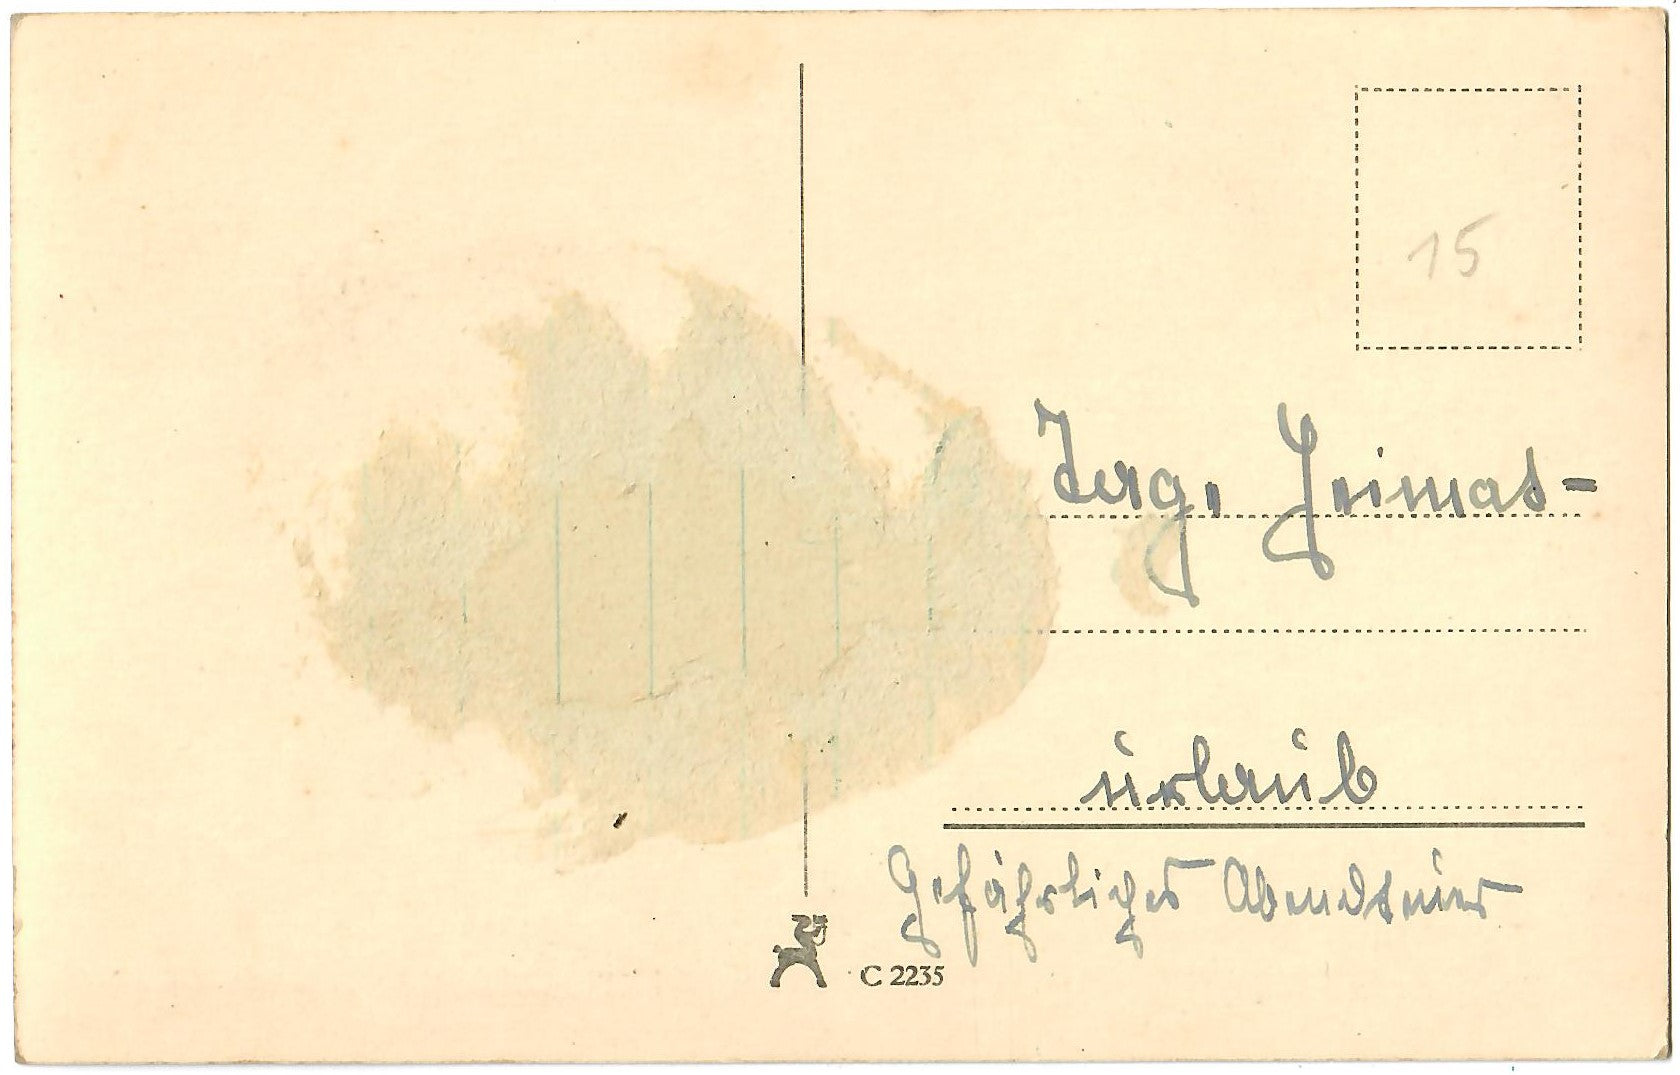 15
Heimat-
urlaub
Gefährliches Abendteuer
C 2235